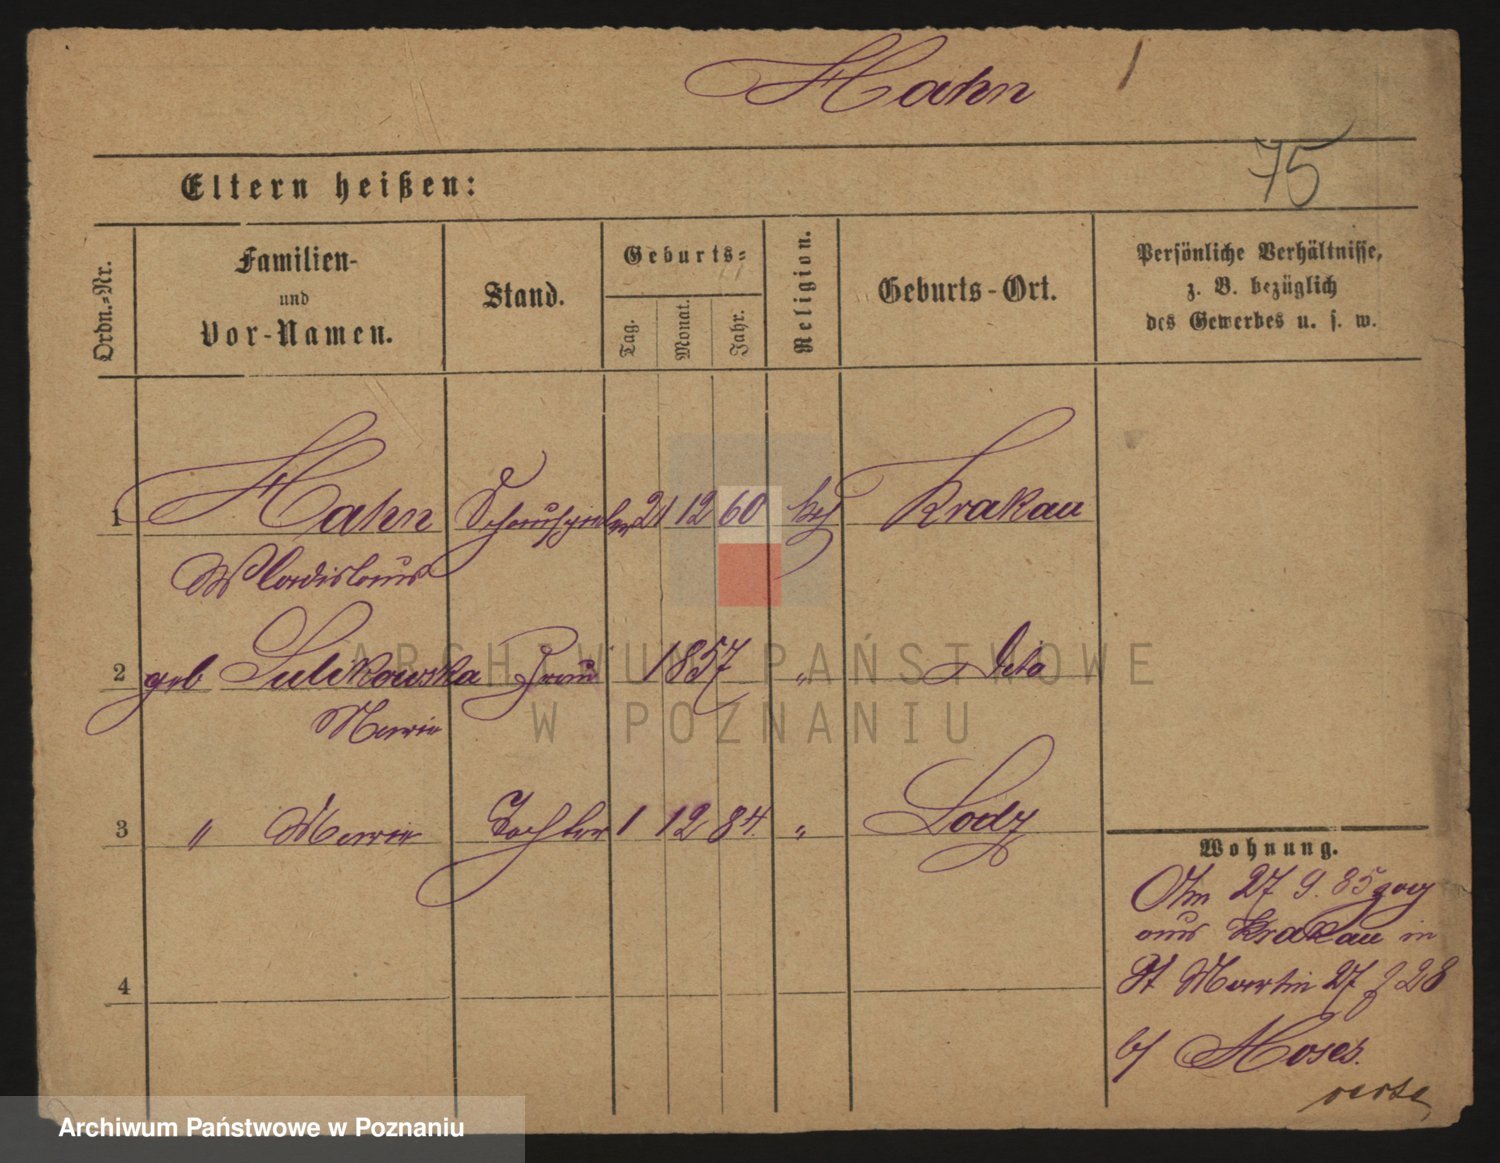 Hahn
75
Eltern heißen:
Ordn.-Nr.
Familien-
und
Vor-Namen.
Stand.
Geburts-
Tag.
Monat.
Jahr.
Religion.
Geburts-Ort.
Persönliche Verhältnisse,
z. B. bezüglich
des Gewerbes u. s. w.
1 Hahn Schauspieler 21 12 60 kth Krakau
Wladislaus
2 geb Sulikowska Frau 1857 " Dito
Marie
3 " Marie Tochter 1 12 84. " Lodz
4
Wohnung.
27 9. 85 zog
aus Krakau in
St Martin 27 28
b/ Moses.
verte
ARCHIWUM PAŃSTWOWE
W POZNANIU
Archiwum Państwowe w Poznaniu